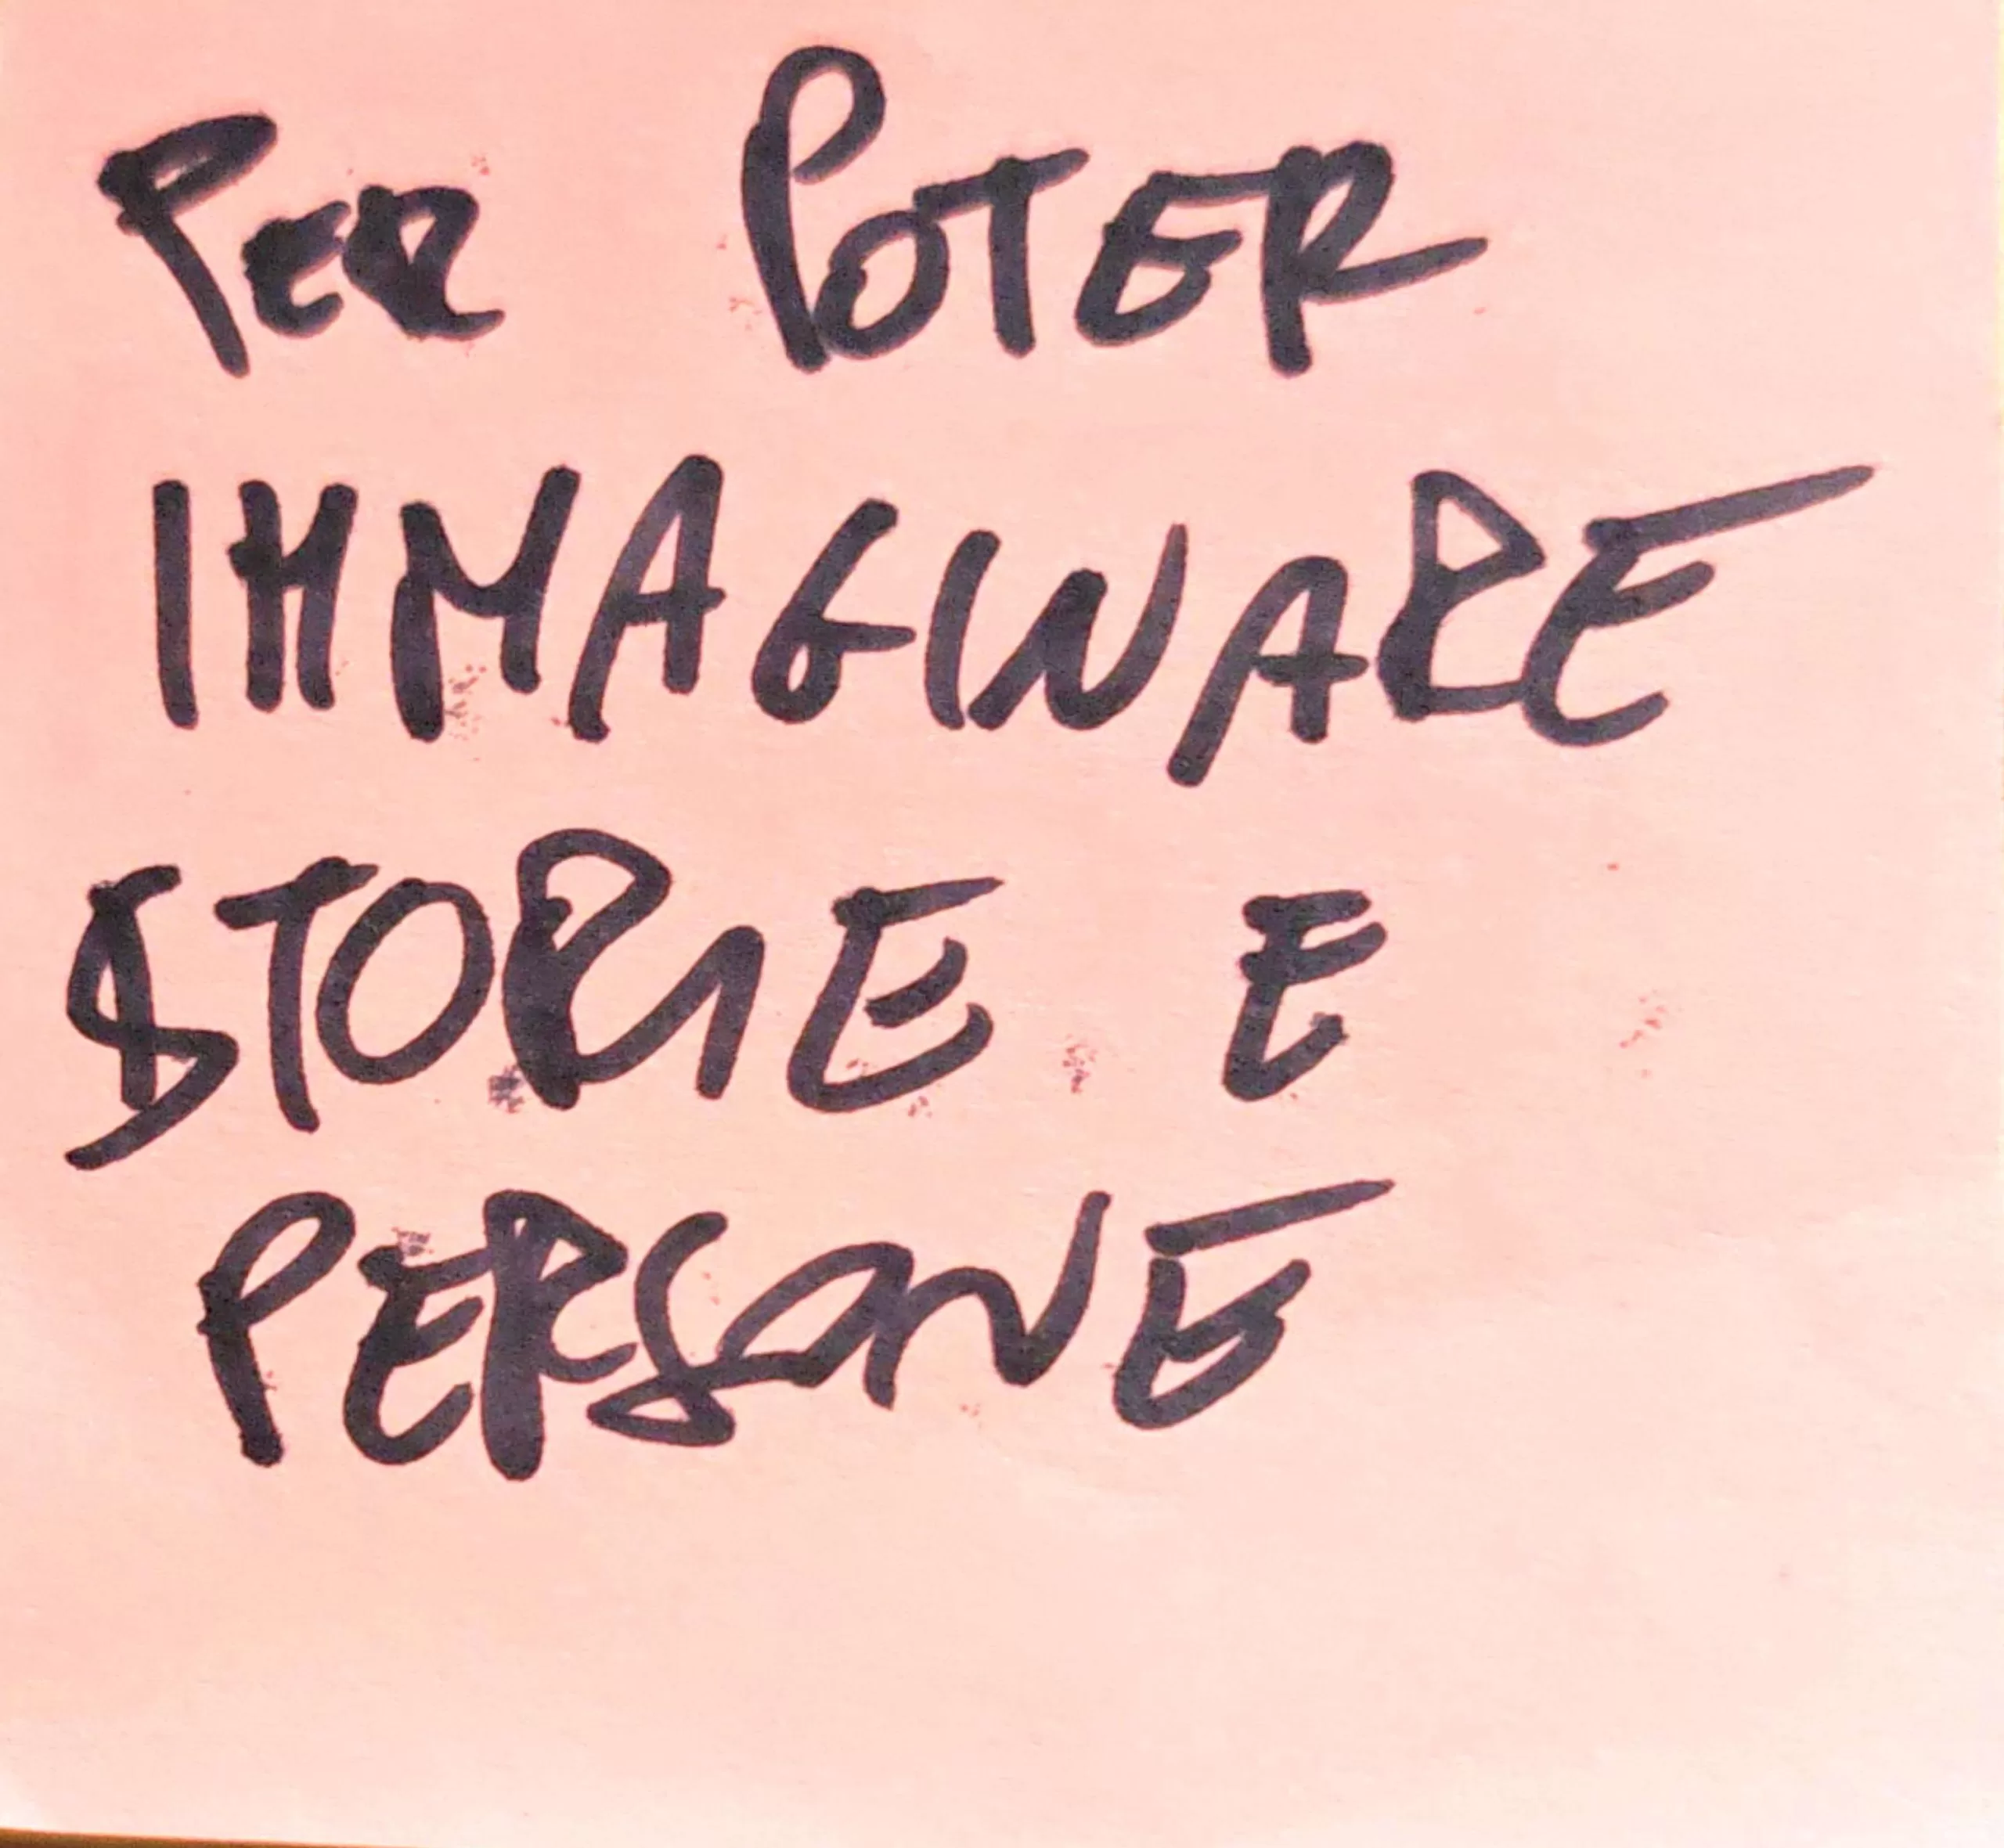 PER POTER
IMMAGINARE
STORIE E
PERSONE